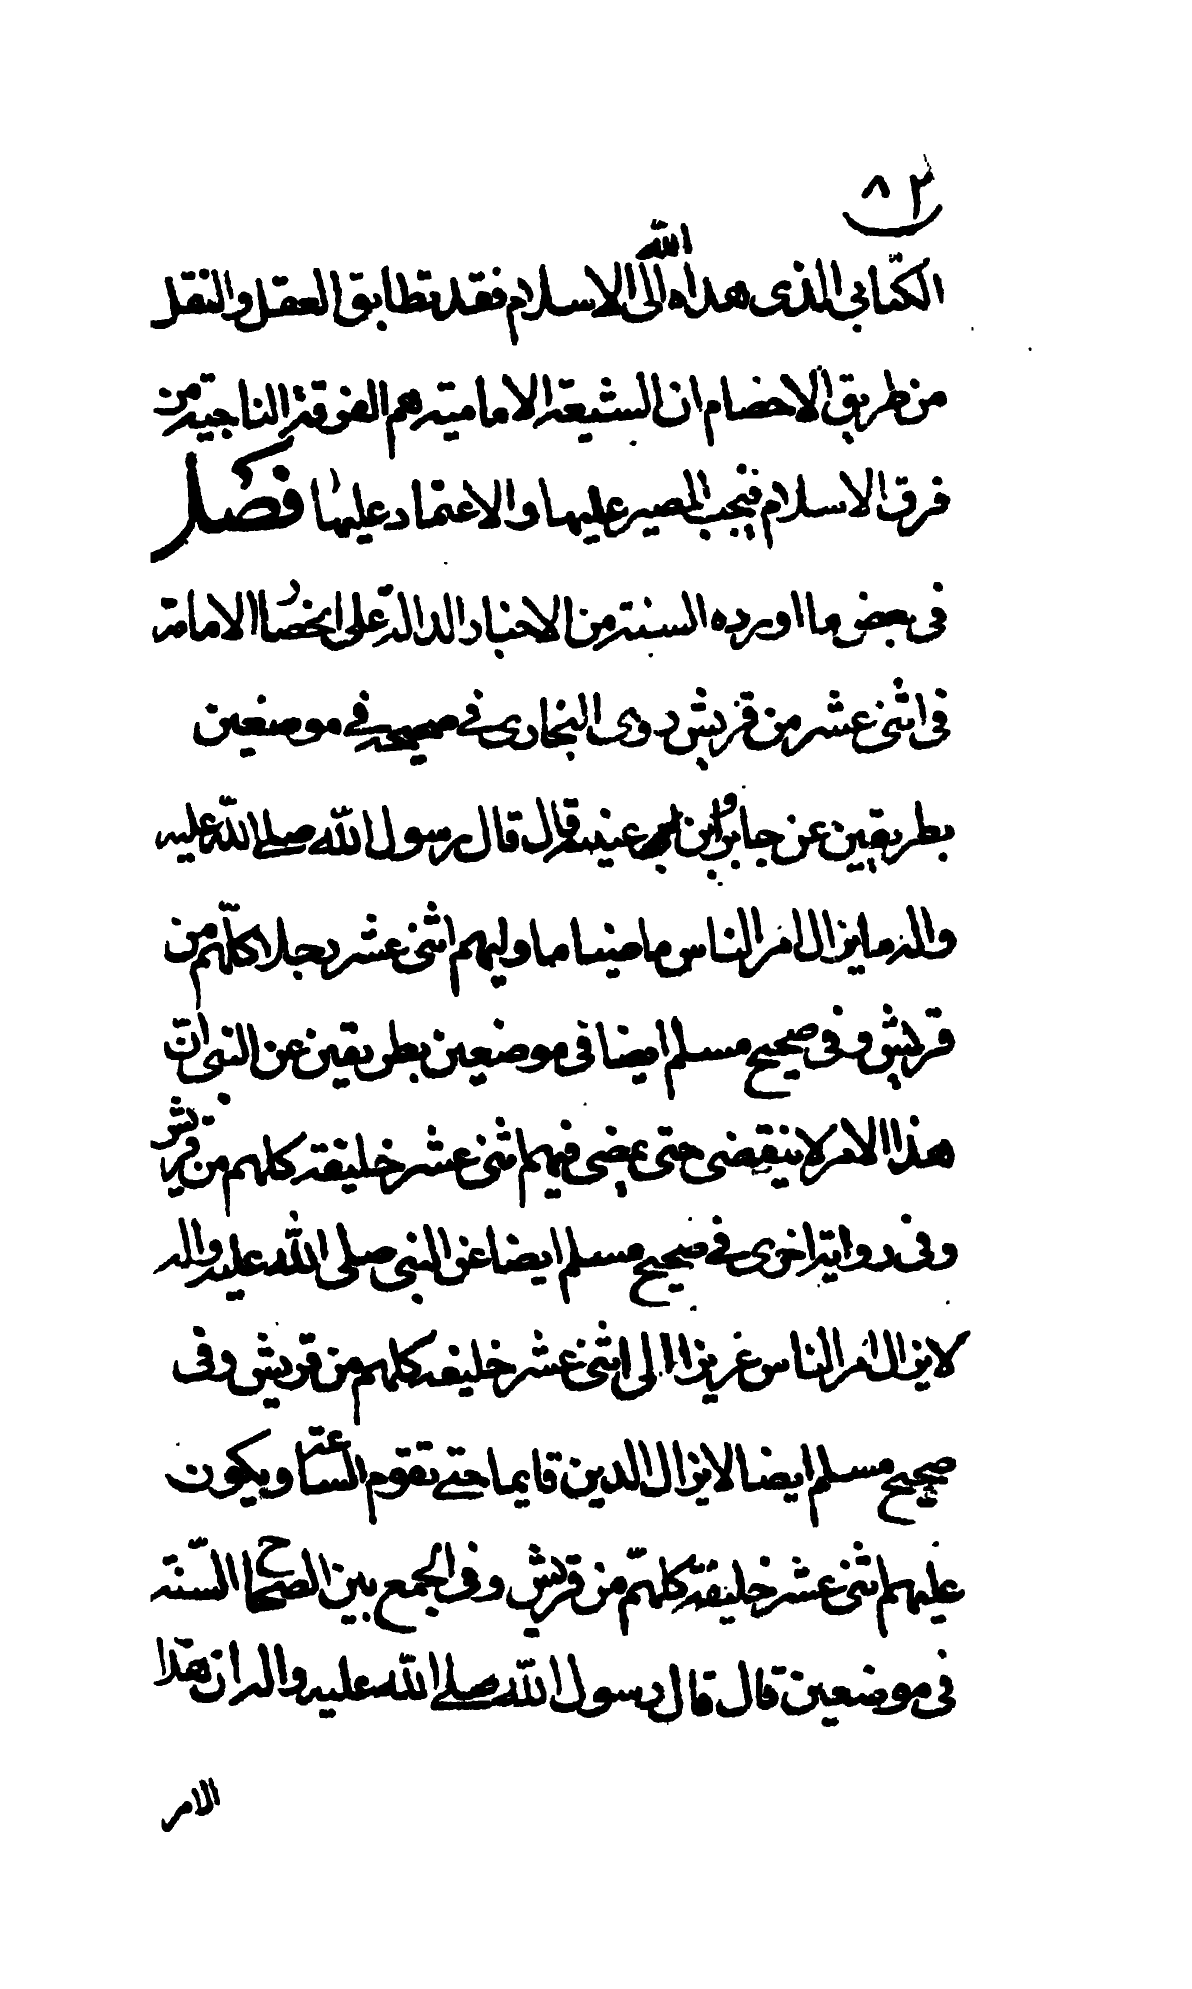 ٨٢
الكتابي الذى هداه الله الى الاسلام فقد تطابق العقل والنقل
من طريق الاخصام ان الشيعة الامامية هم الفرقة الناجية من
فرق الاسلام فيجب المصير عليها والاعتماد عليها فصل
فى بعض ما اورده السنة من الاخبار الدالة على انحصار الامامة
فى اثنى عشر من قريش روى البخارى في صحيحه في موضعين
بطريقين عن جابر وابن عيينة قال قال رسول الله صلى الله عليه
واله ما يزال امر الناس ماضيا ما وليهم اثنى عشر رجلا كلّهم من
قريش وفى صحيح مسلم ايضا فى موضعين بطريقين عن النبى انّ
هذا الامر لا ينقضى حتى يمضى فيهم اثنى عشر خليفة كلهم من قريش
وفى رواية اخرى في صحيح مسلم ايضا عن النبى صلى الله عليه واله
لا يزال امر الناس عزيزا الى اثنى عشر خليفة كلهم من قريش وفى
صحيح مسلم ايضا لا يزال الدين قايما حتى تقوم الساعة ويكون
عليهم اثنى عشر خليفة كلهمّ من قريش وفى الجمع بين الصحاح السّتة
فى موضعين قال قال رسول الله صلى الله عليه واله ان هذا
الامر